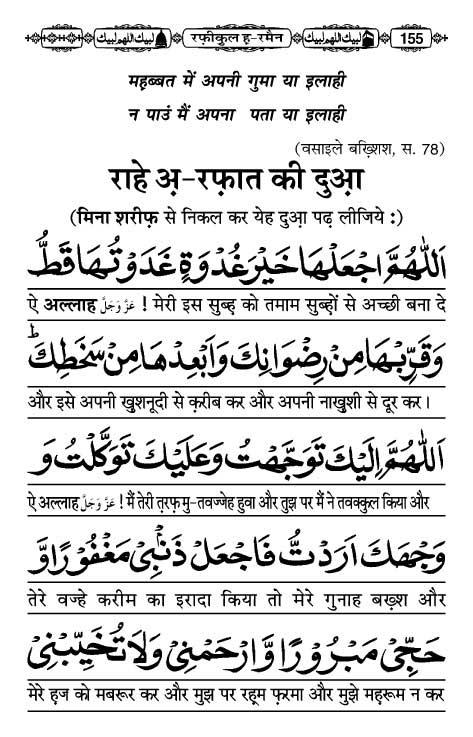 لبيك اللهم لبيك रफ़ीकुल ह-रमैन لبيك اللهم لبيك 155
महब्बत में अपनी गुमा या इलाही
न पाउं मैं अपना पता या इलाही
(वसाइले बख़्शिश, स. 78)
राहे अ़-रफ़ात की दुआ़
(मिना शरीफ़ से निकल कर येह दुआ़ पढ़ लीजिये :)
اَللّٰهُمَّ اجْعَلْهَا خَيْرَ غُدْوَةٍ غَدَوْتُهَا قَطُّ
ऐ अल्लाह عَزَّوَجَلَّ ! मेरी इस सुब्ह़ को तमाम सुब्ह़ों से अच्छी बना दे
وَقَرِّبْهَا مِنْ رِضْوَانِكَ وَاَبْعِدْهَا مِنْ سَخَطِكَ ط
और इसे अपनी ख़ुशनूदी से क़रीब कर और अपनी नाख़ुशी से दूर कर।
اَللّٰهُمَّ اِلَيْكَ تَوَجَّهْتُ وَعَلَيْكَ تَوَكَّلْتُ وَ
ऐ अल्लाह عَزَّوَجَلَّ ! मैं तेरी त़रफ़ मु-तवज्जेह हुवा और तुझ पर मैं ने तवक्कुल किया और
وَجْهَكَ اَرَدْتُّ فَاجْعَلْ ذَنْۢبِيْ مَغْفُوْرًا وَّ
तेरे वज्हे करीम का इरादा किया तो मेरे गुनाह बख़्श और
حَجِّيْ مَبْرُوْرًا وَّارْحَمْنِيْ وَلَا تُخَيِّبْنِيْ
मेरे ह़ज को मबरूर कर और मुझ पर रह़्म फ़रमा और मुझे मह़रूम न कर